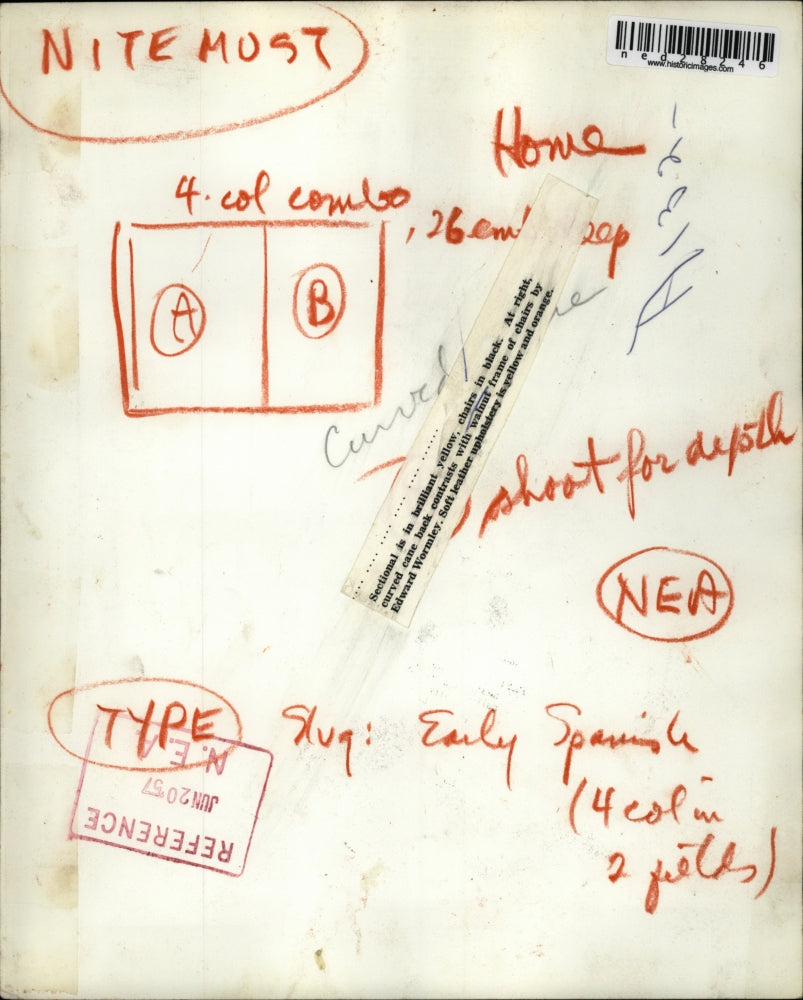 NITE MUST
ned28246
www.historicimages.com
Home
4-col combo
, 26 em
A
B
Curved
........................ Sectional is in brilliant yellow, chairs in black. At right,
curved cane back contrasts with walnut frame of chairs by
Edward Wormley. Soft leather upholstery is yellow and orange.
shoot for depth
NEA
TYPE
Slug: Early Spanish
(4 col in
2 fields)
N. E. A.
JUN 20 '57
REFERENCE